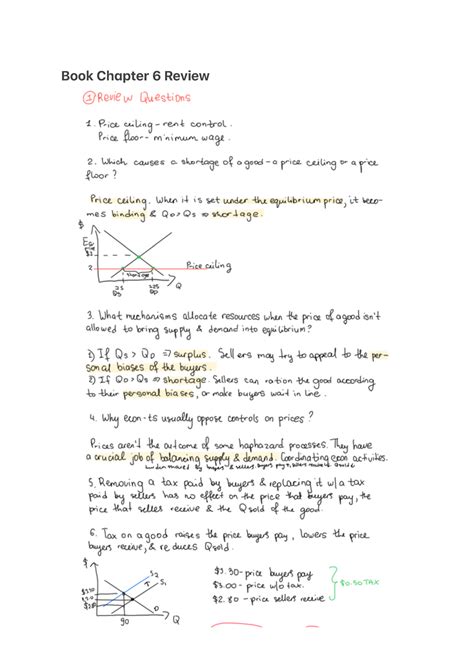 Book Chapter 6 Review
① Review Questions
1. Price ceiling - rent control.
Price floor - minimum wage.
2. Which causes a shortage of a good - a price ceiling or a price
floor?
Price ceiling. When it is set under the equilibrium price, it beco-
mes binding & QD>QS ⇒ shortage.
$
Eq
$3
2
shortage
Price ceiling
Q
3. What mechanisms allocate resources when the price of a good isn't
allowed to bring supply & demand into equilibrium?
1) If QS > QD ⇒ surplus. Sellers may try to appeal to the per-
sonal biases of the buyers.
2) If QD > QS ⇒ shortage. Sellers can ration the good according
to their personal biases, or make buyers wait in line.
4. Why econ-ts usually oppose controls on prices?
Prices aren't the outcome of some haphazard processes. They have
a crucial job of balancing supply & demand. Coordinating econ activities.
5. Removing a tax paid by buyers & replacing it w/a tax
paid by sellers has no effect on the price that buyers pay, the
price that sellers receive & the Q sold of the good.
6. Tax on a good raises the price buyers pay, lowers the price
buyers receive, & reduces Q sold.
$
S2
S1
D
90
Q
$3.30 - price buyers pay
$3.00 - price w/o tax.
$2.80 - price sellers receive
$0.50 TAX